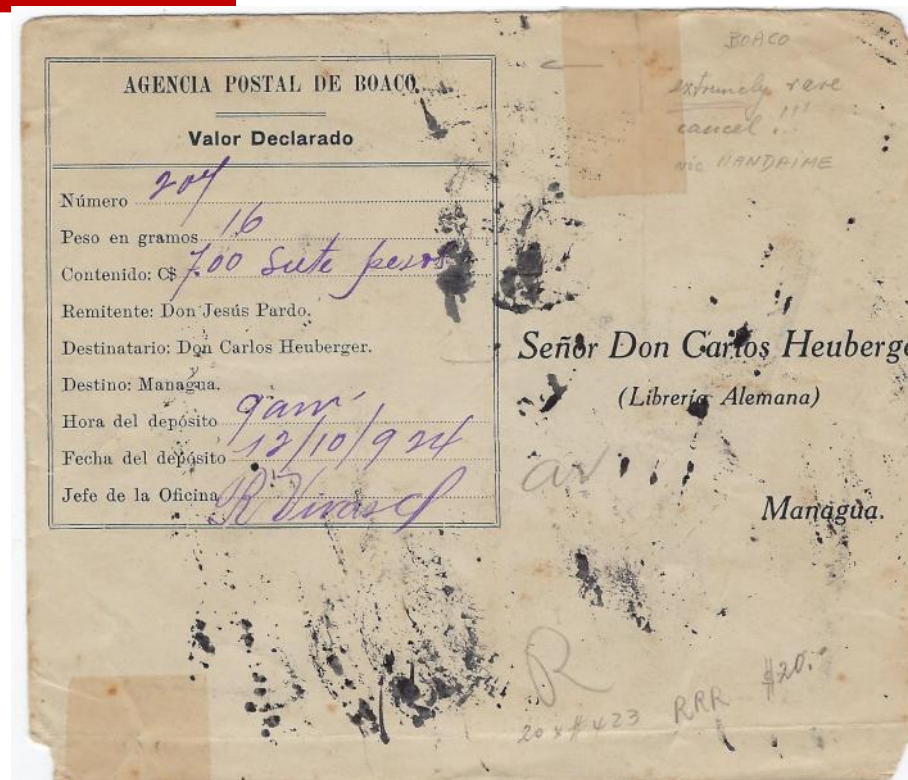 AGENCIA POSTAL DE BOACO.
Valor Declarado
Número 207
Peso en gramos 16
Contenido: C$ 7.00 Siete pesos
Remitente: Don Jesús Pardo.
Destinatario: Don Carlos Heuberger.
Destino: Managua.
Hora del depósito 9 am.
Fecha del depósito 12/10/924
Jefe de la Oficina
BOACO
extremely rare
cancel !!!
nic NANDAIME
Señor Don Carlos Heuberge
(Librería Alemana)
Managua.
R
20 x #423 RRR $20.-